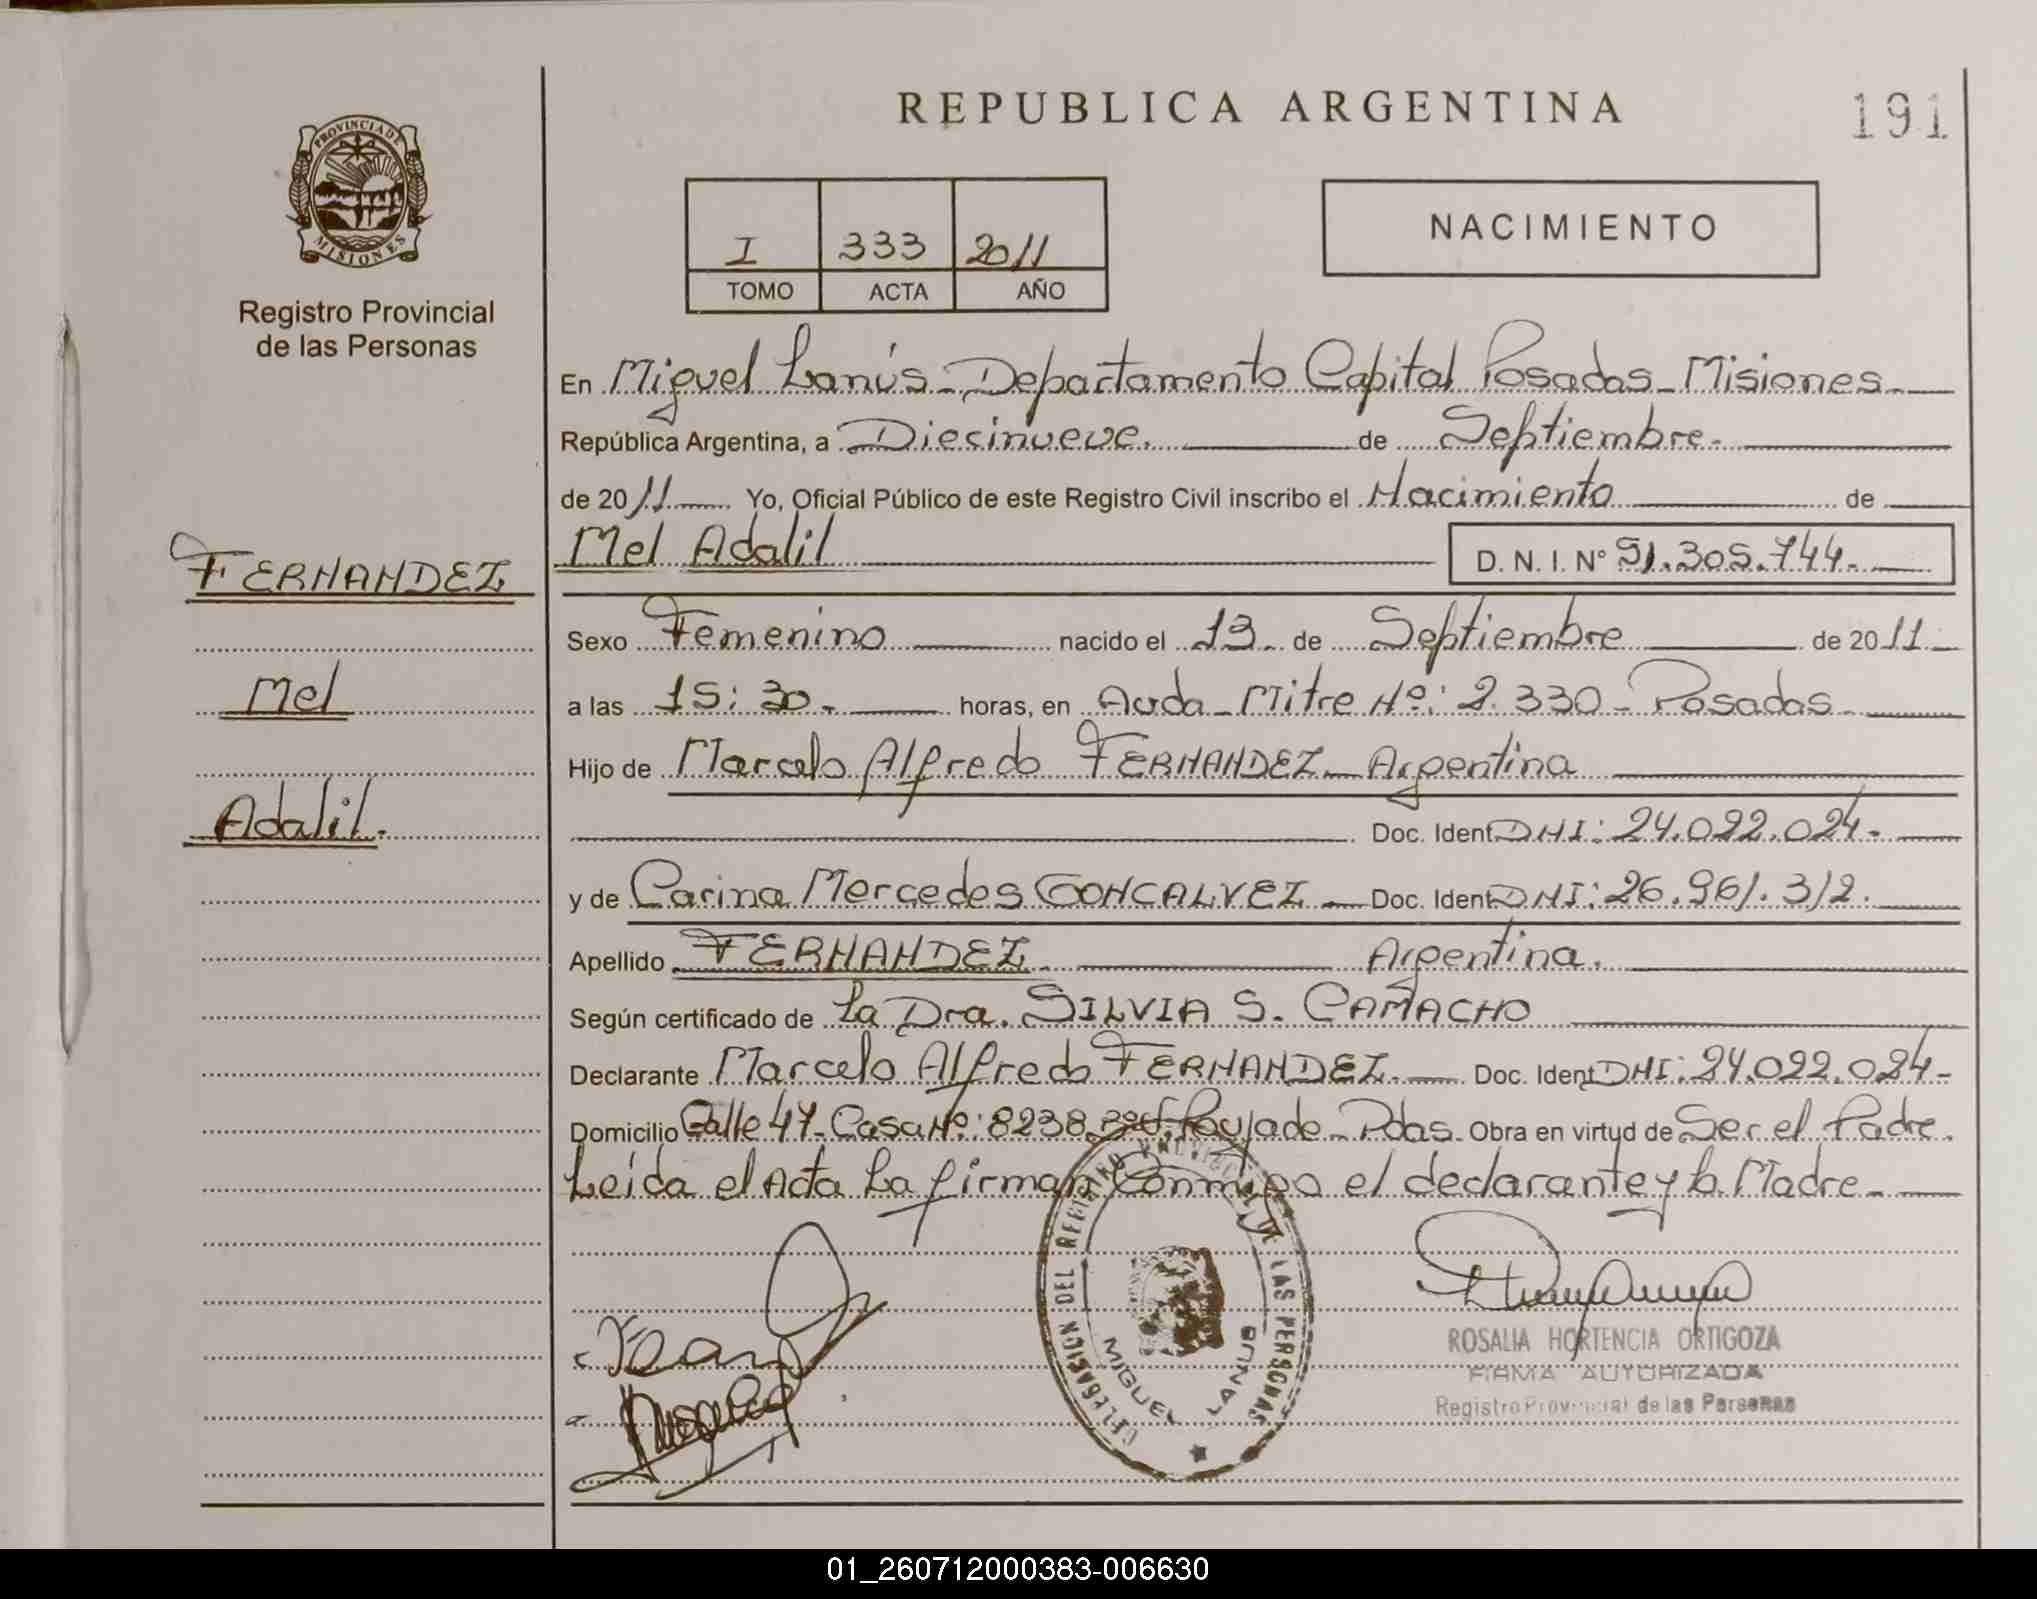 REPUBLICA ARGENTINA
191
PROVINCIA DE MISIONES
Registro Provincial
de las Personas
I 333 2011
TOMO ACTA AÑO
NACIMIENTO
En Miguel Lanús - Departamento Capital Posadas - Misiones -
República Argentina, a Diecinueve. de Septiembre -
de 2011 Yo, Oficial Público de este Registro Civil inscribo el Nacimiento de
FERNANDEZ
Mel Adalil D. N. I. N° 51.305.744.-
Sexo Femenino nacido el 13 de Septiembre de 2011
Mel
a las 15:30 - horas, en Avda - Mitre Nº: 2.330 - Posadas -
Hijo de Marcelo Alfredo FERNANDEZ - Argentina
Adalil.
Doc. Ident DNI: 24.022.024.-
y de Carina Mercedes GONCALVEZ - Doc. Ident DNI: 26.961.312.
Apellido FERNANDEZ - Argentina.
Según certificado de La Dra. SILVIA S. CAMACHO
Declarante Marcelo Alfredo FERNANDEZ. Doc. Ident DNI: 24.022.024-
Domicilio Calle 47 - Casa Nº: 8238 Fayjade - Pdas. Obra en virtud de Ser el Padre.
Leída el Acta La firman Conmigo el declarante y la Madre -
DELEGACION DEL REGISTRO PROVINCIAL DE LAS PERSONAS
MIGUEL LANUS
ROSALIA HORTENCIA ORTIGOZA
FIRMA AUTORIZADA
Registro Provincial de las Personas
01_260712000383-006630